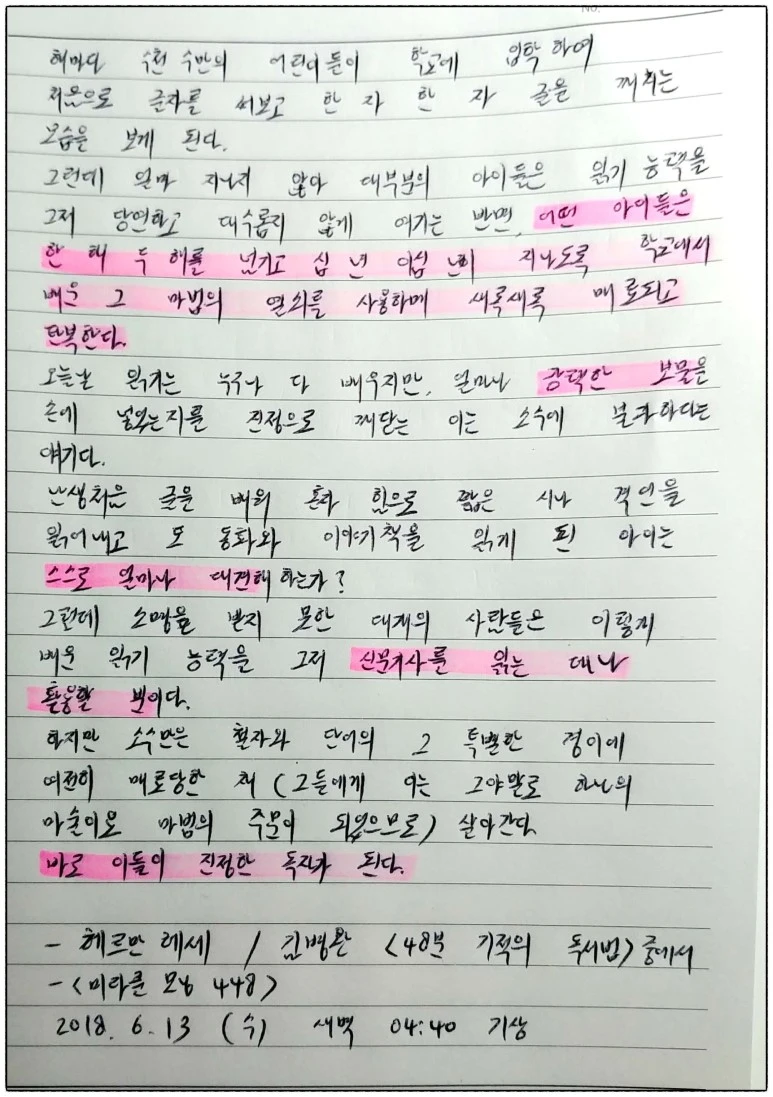 No.
해마다 수천 수만의 어린이들이 학교에 입학하여
처음으로 글자를 써보고 한 자 한 자 글을 깨치는
모습을 보게 된다.
그런데 얼마 지나지 않아 대부분의 아이들은 읽기 능력을
그저 당연하고 대수롭지 않게 여기는 반면, 어떤 아이들은
한 해 두 해를 넘기고 십 년 이십 년이 지나도록 학교에서
배운 그 마법의 열쇠를 사용하며 새록새록 매료되고
탄복한다.
오늘날 읽기는 누구나 다 배우지만, 얼마나 강력한 보물을
손에 넣었는지를 진정으로 깨닫는 이는 소수에 불과하다는
얘기다.
난생처음 글을 배워 혼자 힘으로 짧은 시나 격언을
읽어내고 또 동화와 이야기책을 읽게 된 아이는
스스로 얼마나 대견해 하는가?
그런데 소명을 받지 못한 대개의 사람들은 이렇게
배운 읽기 능력을 그저 신문기사를 읽는 데나
활용할 뿐이다.
하지만 소수만은 철자와 단어의 그 특별한 경이에
여전히 매료당한 채 (그들에게 이는 그야말로 하나의
마술이요 마법의 주문이 되었으므로) 살아간다
바로 이들이 진정한 독자가 된다.
- 헤르만 헤세 / 김병완 <48분 기적의 독서법> 중에서
- <미라클 모닝 448>
2018. 6. 13 (수) 새벽 04:40 기상